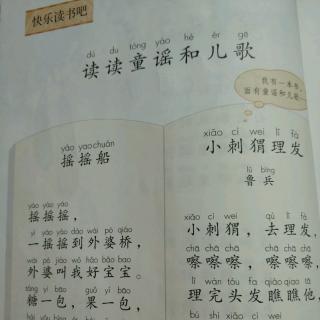 快乐读书吧
dú du tóng yáo hé ér gē
读读童谣和儿歌
我有一本书，
面有童谣和儿歌
yáo yao chuán
摇摇船
yáo yáo yáo
摇摇摇，
yì yáo yáo dào wài pó qiáo
一摇摇到外婆桥，
wài pó jiào wǒ hǎo bǎo bao
外婆叫我好宝宝。
糖一包，果一包，
xiǎo cì wei lǐ fà
小刺猬理发
lǔ bīng
鲁兵
xiǎo cì wei qù lǐ fà
小刺猬，去理发，
chā chā chā chā chā chā
嚓嚓嚓，嚓嚓嚓，
lǐ wán tóu fa qiáo qiao tā
理完头发瞧瞧他，